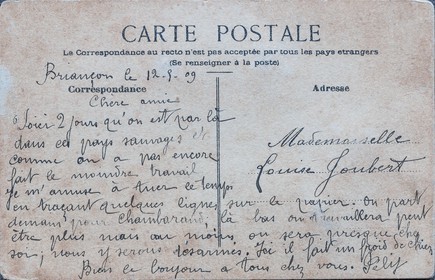 CARTE POSTALE
La Correspondance au recto n'est pas acceptée par tous les pays etrangers
(Se renseigner à la poste)
Briançon le 12-9-09
Correspondance
Adresse
Chere amie
Voici 2 jours qu'on est par là
dans ces pays sauvages et
comme on a pas encore
fait le moindre travail
je m'amuse à tuer le temps
en traçant quelques lignes sur le papier. On part
demain pour Chambarand, là bas on travaillera peut
être plus mais au moins on sera presque chez
soi, nous y serons Ici il fait un froid de chien
Bien le bonjour a tous chez vous.
Mademoiselle
Louise Joubert